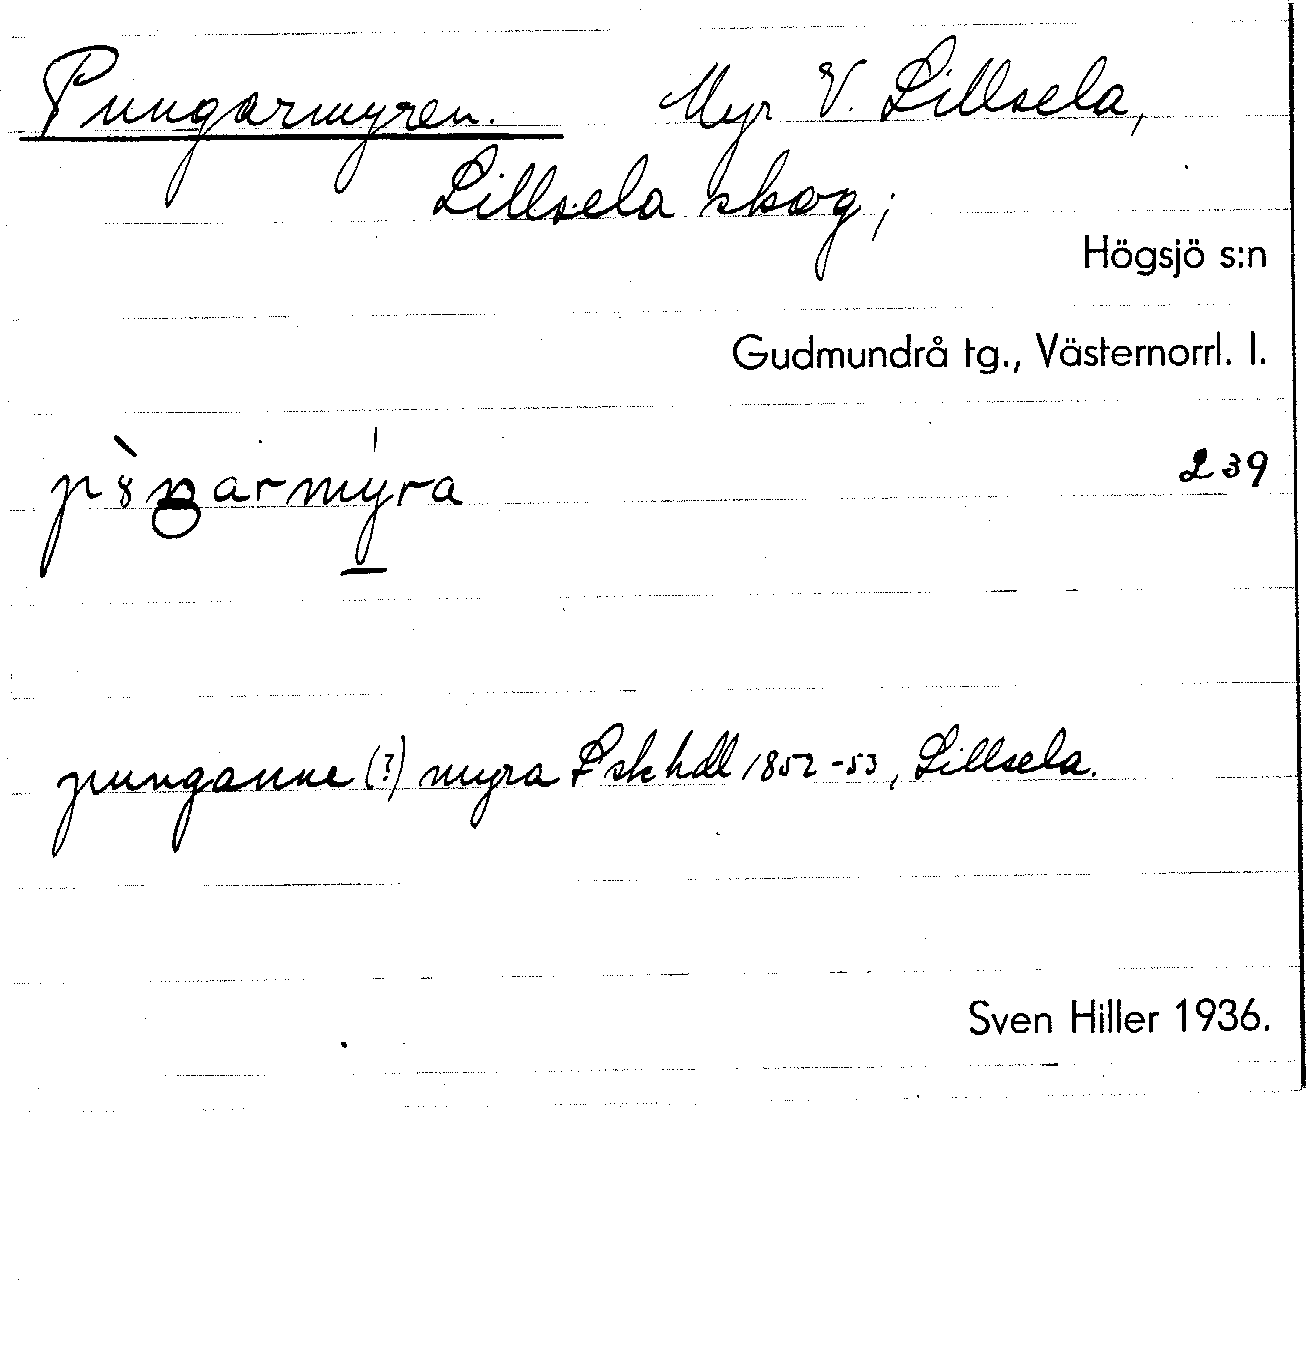 Pungarmyren. Myr V. Lillsela,
Lillsela skog;
Högsjö s:n
Gudmundrå tg., Västernorrl. l.
239
punganne (?) myra Lskhdl 1852-53, Lillsela.
Sven Hiller 1936.